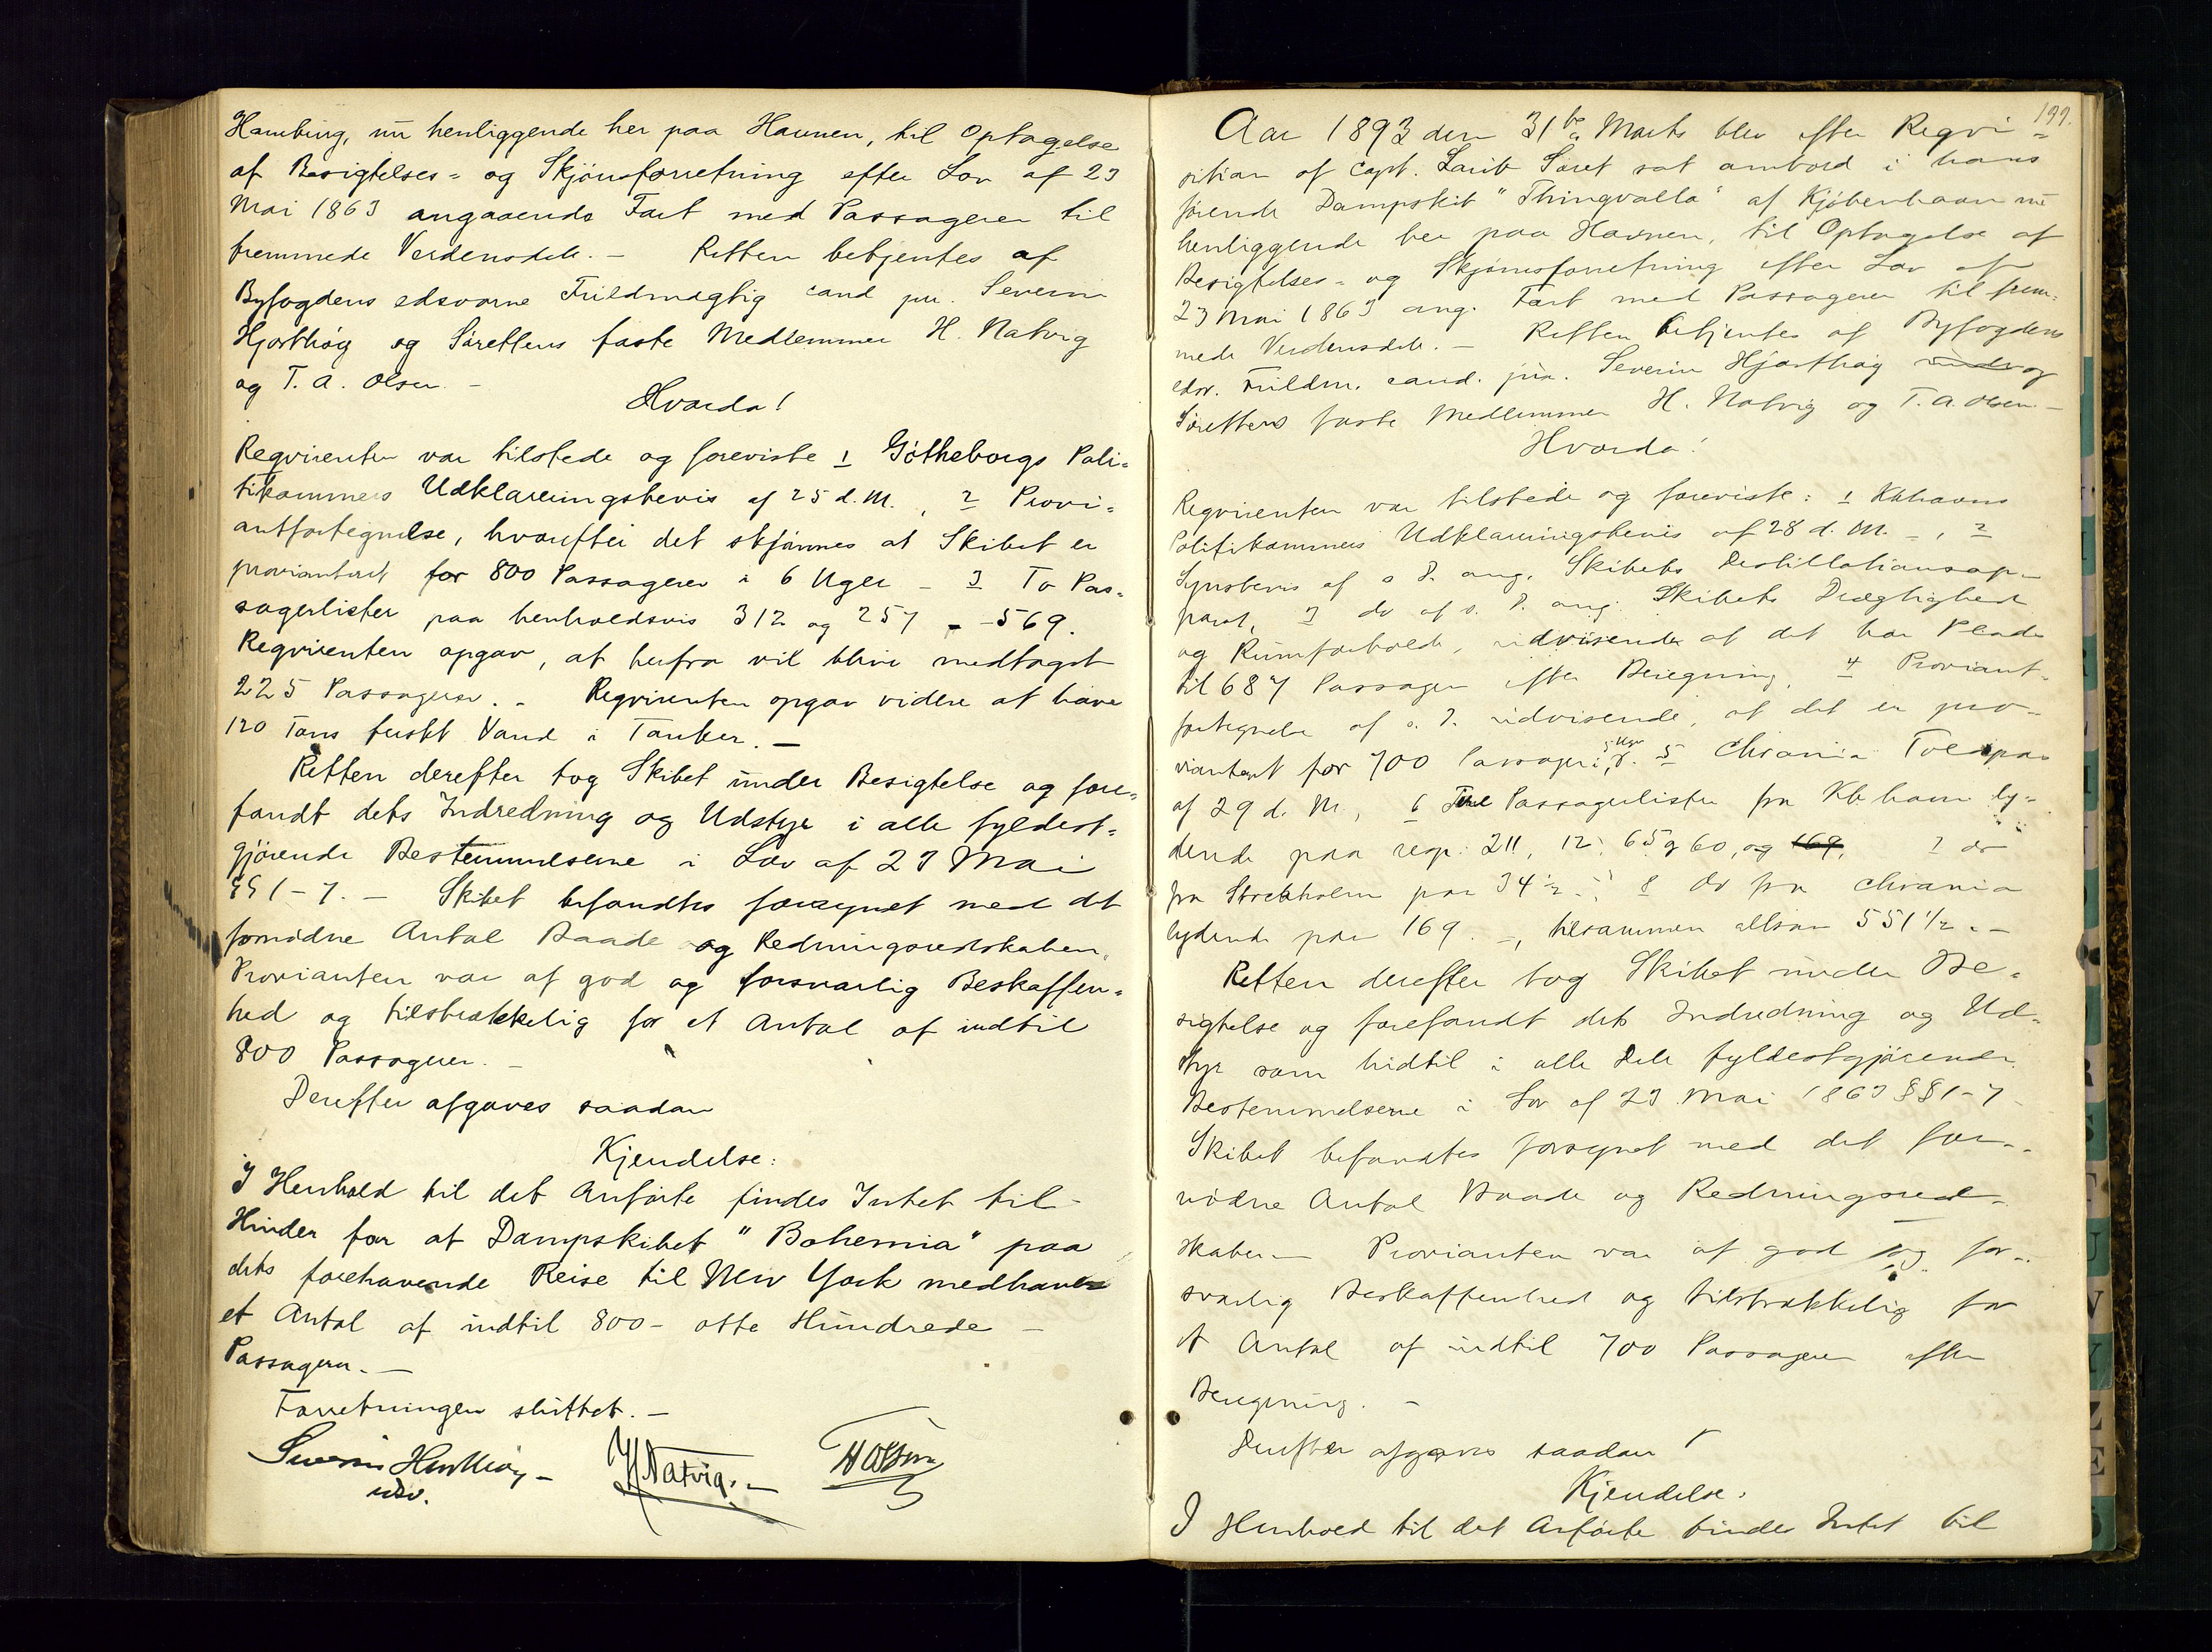 Hamburg, nu henliggende her paa Havnen, til Optagelse
af Besigtelses- og Skjønsforretning efter Lov af 23
Mai 1863 angaaende Fart med Passagerer til
fremmede Verdensdele. – Retten betjentes af
Byfogdens edsvorne Fuldmægtig cand jur. Severin
Hjorthøy og Sørettens faste Medlemmer H. Natvig
og T. A. Olsen. –
Hvorda!
Reqvirenten var tilstede og foreviste 1 Götheborgs Poli-
tikammers Udklareringsbevis af 25 d. M., 2 Provi-
antfortegnelse, hvorefter det skjønnes at Skibet er
provianteret for 800 Passagerer i 6 Uger – 3 To Pas-
sagerlister paa henholdsvis 312 og 257 – - 569.
Reqvirenten opgav, at herfra vil blive medtaget
225 Passagerer. – Reqvirenten opgav videre at have
120 Tons ferskt Vand i Tanker. –
Retten derefter tog Skibet under Besigtelse og fore-
fandt dets Indredning og Udstyr i alle fyldest-
gjørende Bestemmelserne i Lov af 23 Mai
§§ 1-7. – Skibet befandtes forsynet med det
fornødne Antal Baade og Redningsredskaber.
Provianten var af god og forsvarlig Beskaffen-
hed og tilstrækkelig for et Antal af indtil
800 Passagerer. –
Derefter afgaves saadan
Kjendelse:
I Henhold til det Anførte findes Intet til
Hinder for at Dampskibet "Bohemia" paa
dets forehavende Reise til New York medhaver
et Antal af indtil 800 – otte Hundrede –
Passagerer. –
Forretningen sluttet. –
Severin Hjorthøy – H Natvig. – T A Olsen
edsv.
199.
Aar 1893 den 31te Marts blev efter Reqvi-
sition af Capt. Laub Søret sat ombord i hans
førende Dampskib "Thingvalla" af Kjøbenhavn nu
henliggende her paa Havnen, til Optagelse af
Besigtelses- og Skjønsforretning efter Lov af
23 Mai 1863 ang. Fart med Passagerer til frem-
mede Verdensdele. – Retten betjentes af Byfogdens
edsv. Fuldm. cand. jur. Severin Hjorthøy og
Sørettens faste Medlemmer H. Natvig og T. A. Olsen –
Hvorda!
Reqvirenten var tilstede og foreviste: 1 Kbhavns
Politikammers Udklareringsbevis af 28 d. M. –, 2
Synsbevis af s. D. ang. Skibets Destillationsap-
parat, 3 do af s. D. ang. Skibets Drægtighed
og Rumforholde, udvisende at det har Plads
til 687 Passager efter Beregning, 4 Proviant-
fortegnelse af s. D. udvisende, at det er pro-
vianteret for 700 Passager i 5 Uger 5 Chrania Toldpas
af 29 d. M., 6 Passagerlister fra Kbhavn ly-
dende paa resp. 211, 12, 65 og 60, og 169, 7 do
fra Stockholm paa 34 1/2 – 8 do fra Chrania
lydende paa 169. –, tilsammen altsaa 551 1/2. –
Retten derefter tog Skibet under Be-
sigtelse og forefandt dets Indredning og Ud-
styr som hidtil i alle Dele fyldestgjørende
Bestemmelserne i Lov af 23 Mai 1863 §§ 1-7
Skibet befandtes forsynet med det for-
nødne Antal Baade og Redningsred-
skaber – Provianten var af god og for-
svarlig Beskaffenhed og tilstrækkelig for
et Antal af indtil 700 Passagerer efter
Beregning. –
Derefter afgaves saadan
Kjendelse.
I Henhold til det Anførte findes Intet til